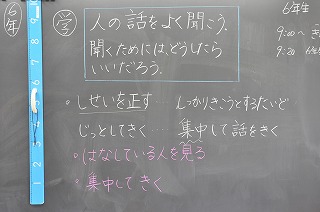 6年
学
人の話をよく聞こう。
聞くためには、どうしたら
いいだろう。
・しせいを正す しっかりきこうとするたいど
じっとしてきく…集中して話をきく
・はなしている人を見る
・集中してきく
6年生
9:20〜
9:20 6年
1 2 3 4 5 6 7 8 9